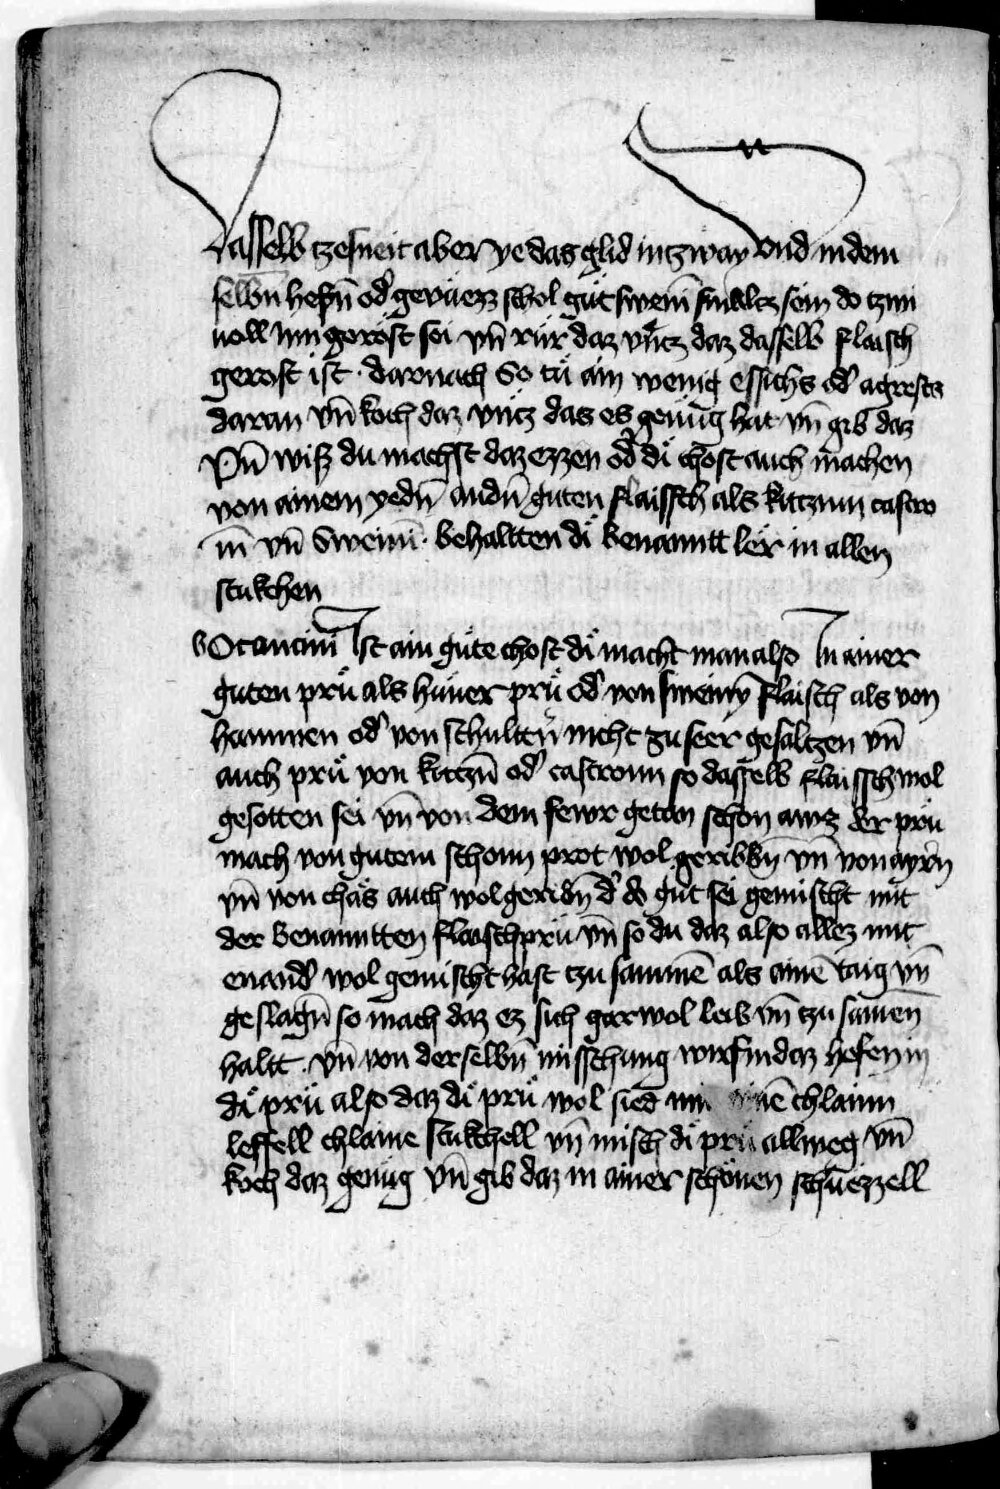 dasselb tzesneit aber ye das glid in tzway vnd in dem
selbn̄ hefn̄ od' gevaezz schol gůt sweim̄ smalcz sein do tzwi
voll inn geröst sei vn̄ rür daz vncz daz dasselb flaisch
gerost ist · darnach So tů ain wenig essichs od' agrests
daran vn̄ koch daz vncz das es genůg hat vn̄ gib daz
Vn̄ wiß du machst daz ezzen od' dÿ chost auch machen
von ainem yedn̄ andn̄ guten flaissch als kitzinn castro
in̄ vn̄ Sweinī · behaltten dÿ benanntt ler in allen
stukchen
Ist ain gůte chost dÿ macht man also In ainer
guten prů als hůner prů od' von sweiny flaisch als von
hammen od' von schultern̄ nicht zu seer gesaltzen vn̄
auch prů von kitzn̄ od' castronn so dasselb flaissch wol
gesotten sei vn̄ von dem fewr getan schon awz der prů
mach von gutem schonn prot wol geribbn̄ vn̄ von ayrn̄
vn̄ von chäs auch wol geribn̄ d' do gůt sei gemischt mit
der benanntten flaischprů vn̄ so du daz also allez mit
enand' wol gemischt hast tzu sammē als ainē taig vn̄
geslagn̄ so mach daz ez sich gar wol leib vn̄ tzu samen̄
haltt · vn̄ von derselbn̄ misschung wirf in daz hefen in
dÿ prů also daz dÿ prů wol sied mit ainē chlainn
leffell chlaine stukchell vn̄ misch dÿ prů allweg vn̄
koch daz genůg vn̄ gib daz in ainer schönen schüezzell